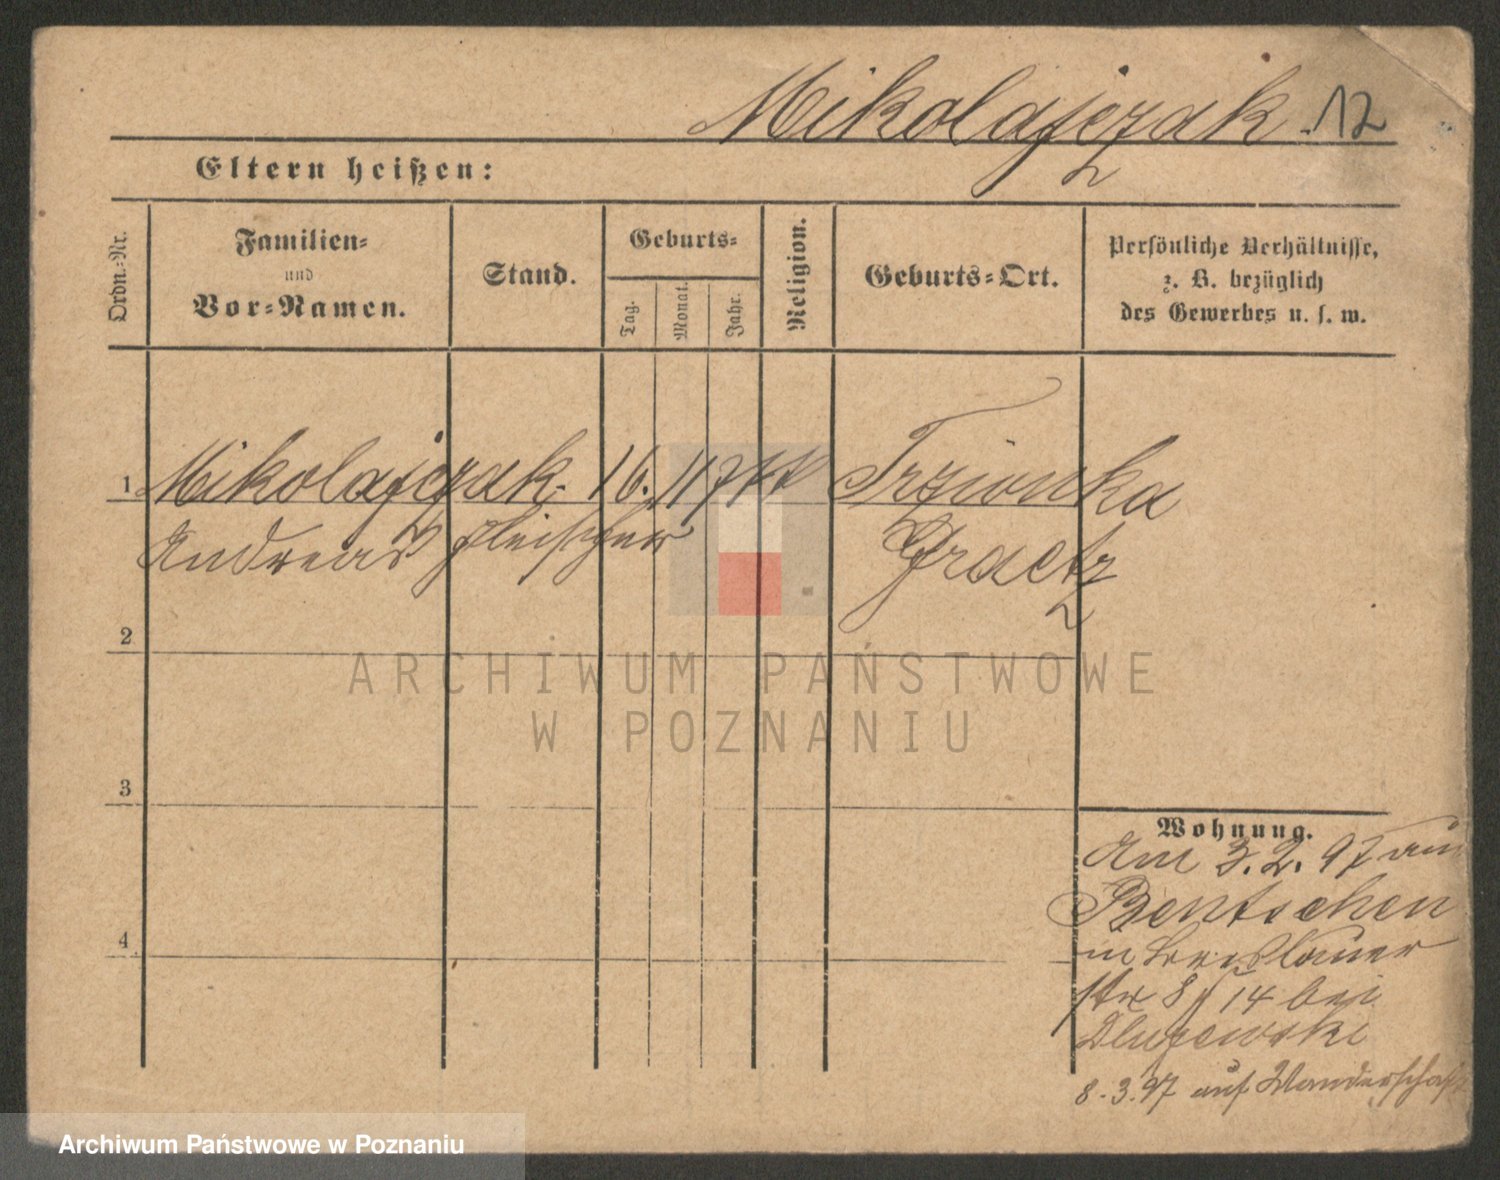 Mikolajczak 12
Eltern heißen:
Ordn.-Nr.
Familien-
und
Vor-Namen.
Stand.
Geburts-
Tag.
Monat.
Jahr.
Religion.
Geburts-Ort.
Persönliche Verhältnisse,
z. B. bezüglich
des Gewerbes u. s. w.
1 Mikolajczak. 16. 11 Trzionka
Andreas Fleischer Graetz
2
3
4
Wohnung.
Am 3.2.97 aus
Bentschen
in Breslauer
str 8/14 bei
Dluzewski
8.3.97 auf Wanderschaft
ARCHIWUM PAŃSTWOWE
W POZNANIU
Archiwum Państwowe w Poznaniu